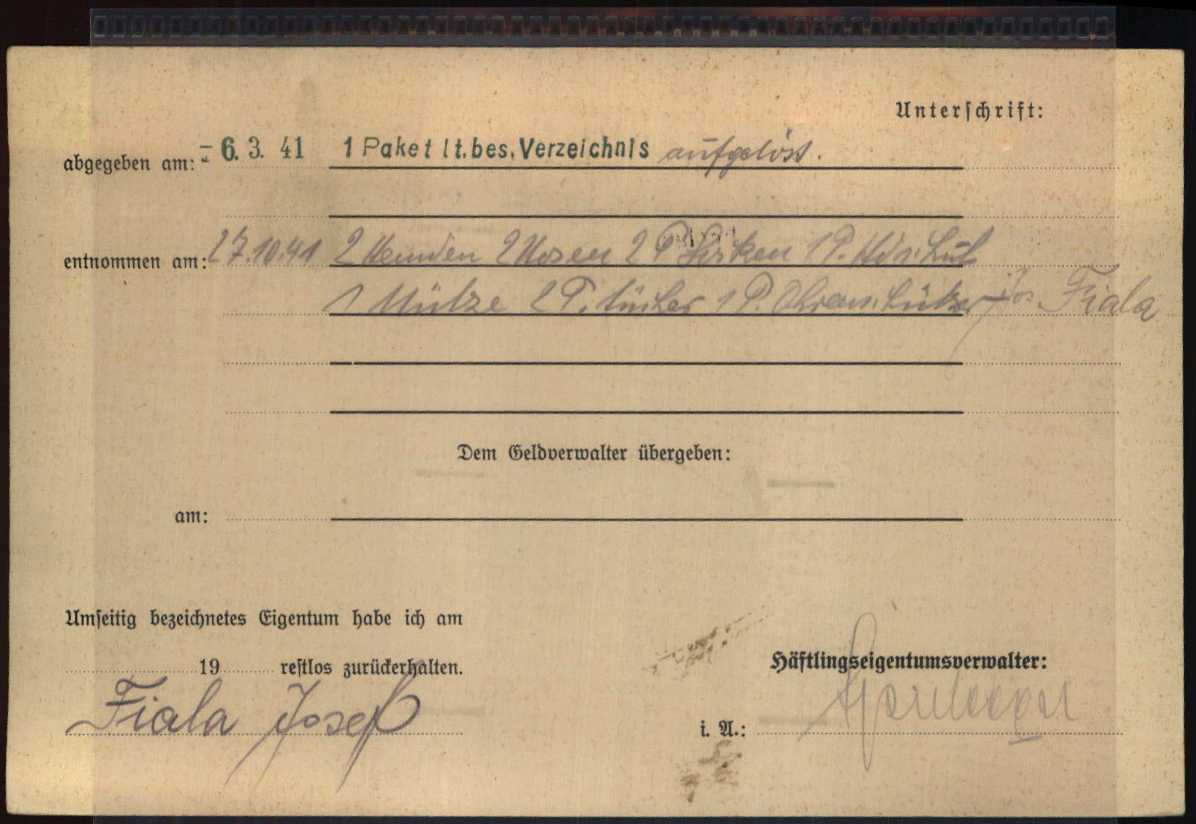 Unterschrift:
abgegeben am: - 6. 3. 41 1 Paket lt. bes. Verzeichnis aufgelöst.
entnommen am: 27.10.41 2 Hemden 2 Hosen 2 P. Socken 1 P.
1 Mütze 2 T. tücher 1 P. Ohrenschützer Jos. Fiala
Dem Geldverwalter übergeben:
am:
Umseitig bezeichnetes Eigentum habe ich am
19 restlos zurückerhalten.
Häftlingseigentumsverwalter:
Fiala Josef
i. A.: